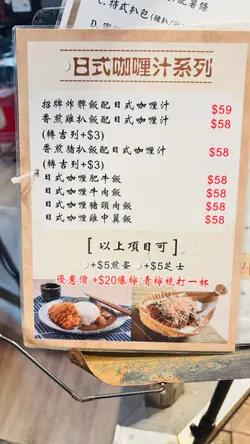 C. 特式扒包(豬扒/
日式咖喱汁系列
招牌炸髀飯配日式咖喱汁 $59
香煎雞扒飯配日式咖喱汁 $58
(轉吉列+$3)
香煎猪扒飯配日式咖喱汁 $58
(轉吉列+$3)
日式咖喱肥牛飯 $58
日式咖喱牛肉飯 $58
日式咖喱豬頸肉飯 $58
日式咖喱雞中翼飯 $58
[ 以上項目可 ]
+$5煎蛋 +$5芝士
優惠價 +$20爆檸 青檸梳打一杯